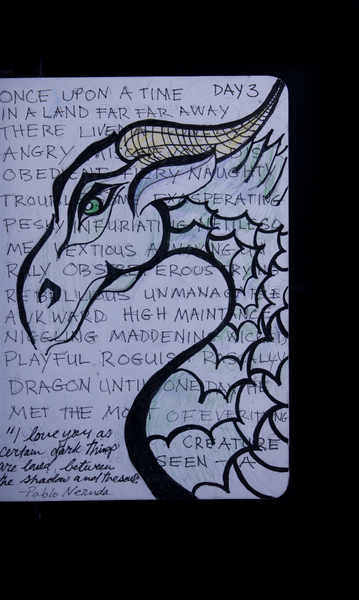 ONCE UPON A TIME DAY 3
IN A LAND FAR FAR AWAY
THERE LIVED
ANGRY
OBEDIENT FIERY NAUGHTY
TROUBLESOME EXASPERATING
PESKY INFURIATING
ME
OBSTREPEROUS
REBELLIOUS UNMANAGEABLE
AWKWARD HIGH MAINTANCE
NIGGLING MADDENING WICKED
PLAYFUL ROGUISH RASCALLY
DRAGON UNTIL ONE DAY HE
MET THE MOST OF EVERYTHING
CREATURE
SEEN – A
"I love you as
certain dark things
are loved, between
the shadow and the soul."
-Pablo Neruda